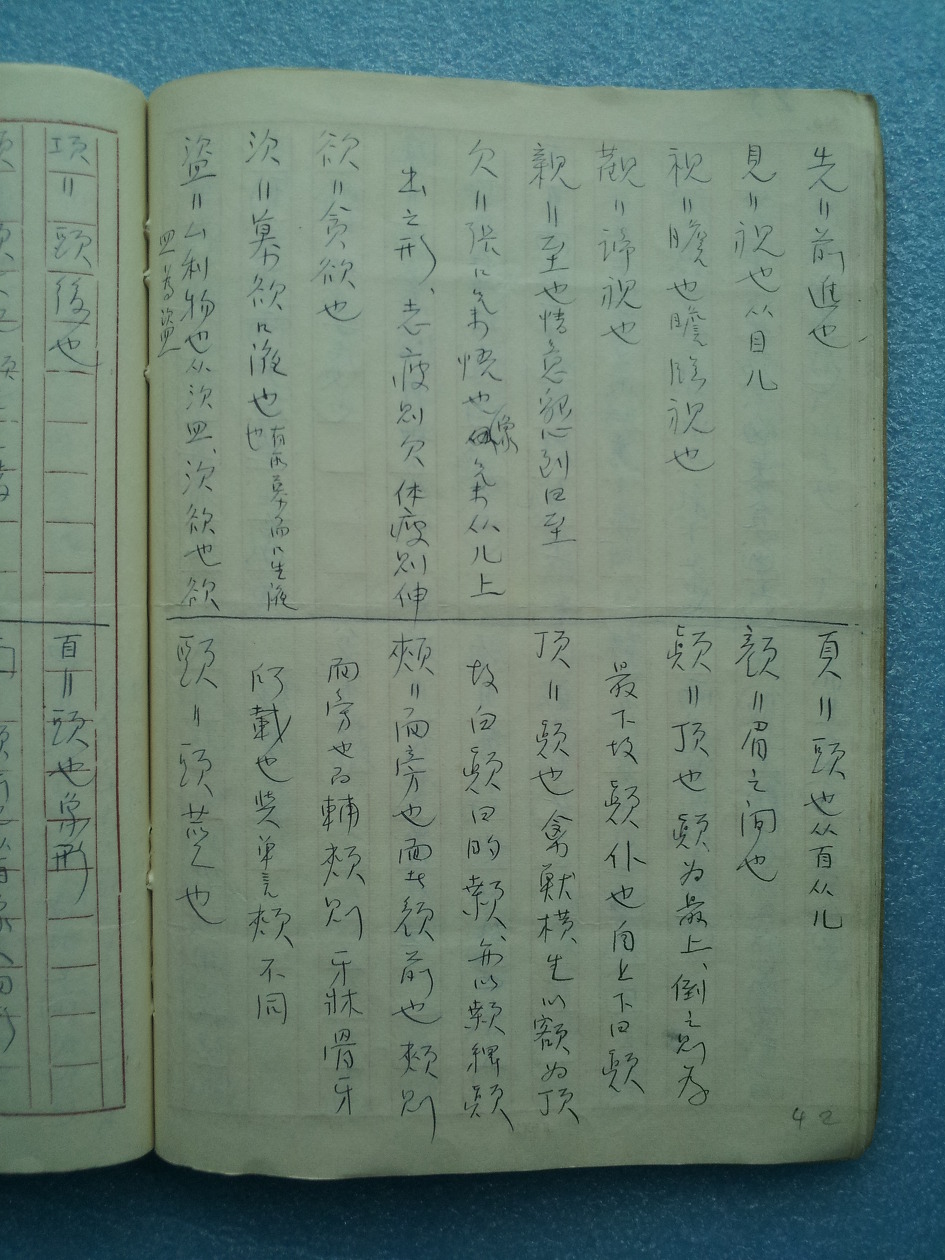 先=前進也
見=視也从目儿
視=瞻也瞻臨視也
觀=諦視也
親=至也情意懇到曰至
欠=張口气悟也像气从儿上
出之形、志疲則欠体疲則伸
欲=貪欲也
㳄=慕欲口液也有所慕而口生液
也
盜=厶利物也从㳄皿、㳄欲也欲
皿為盜
頁=頭也从𦣻从儿
顏=眉之間也
顛=頂也顛为最上、倒之則为
最下故顛仆也自上下曰顛
頂=顛也禽獸橫生以額为頂
故白顛曰的顙、亦以顙稱顛
頰=面旁也面者顏前也頰則
面旁也曰輔頰則牙牀骨牙
所載也與單言頰不同
頸=頭莖也
項=頸後也
𦣻=頭也象形
42